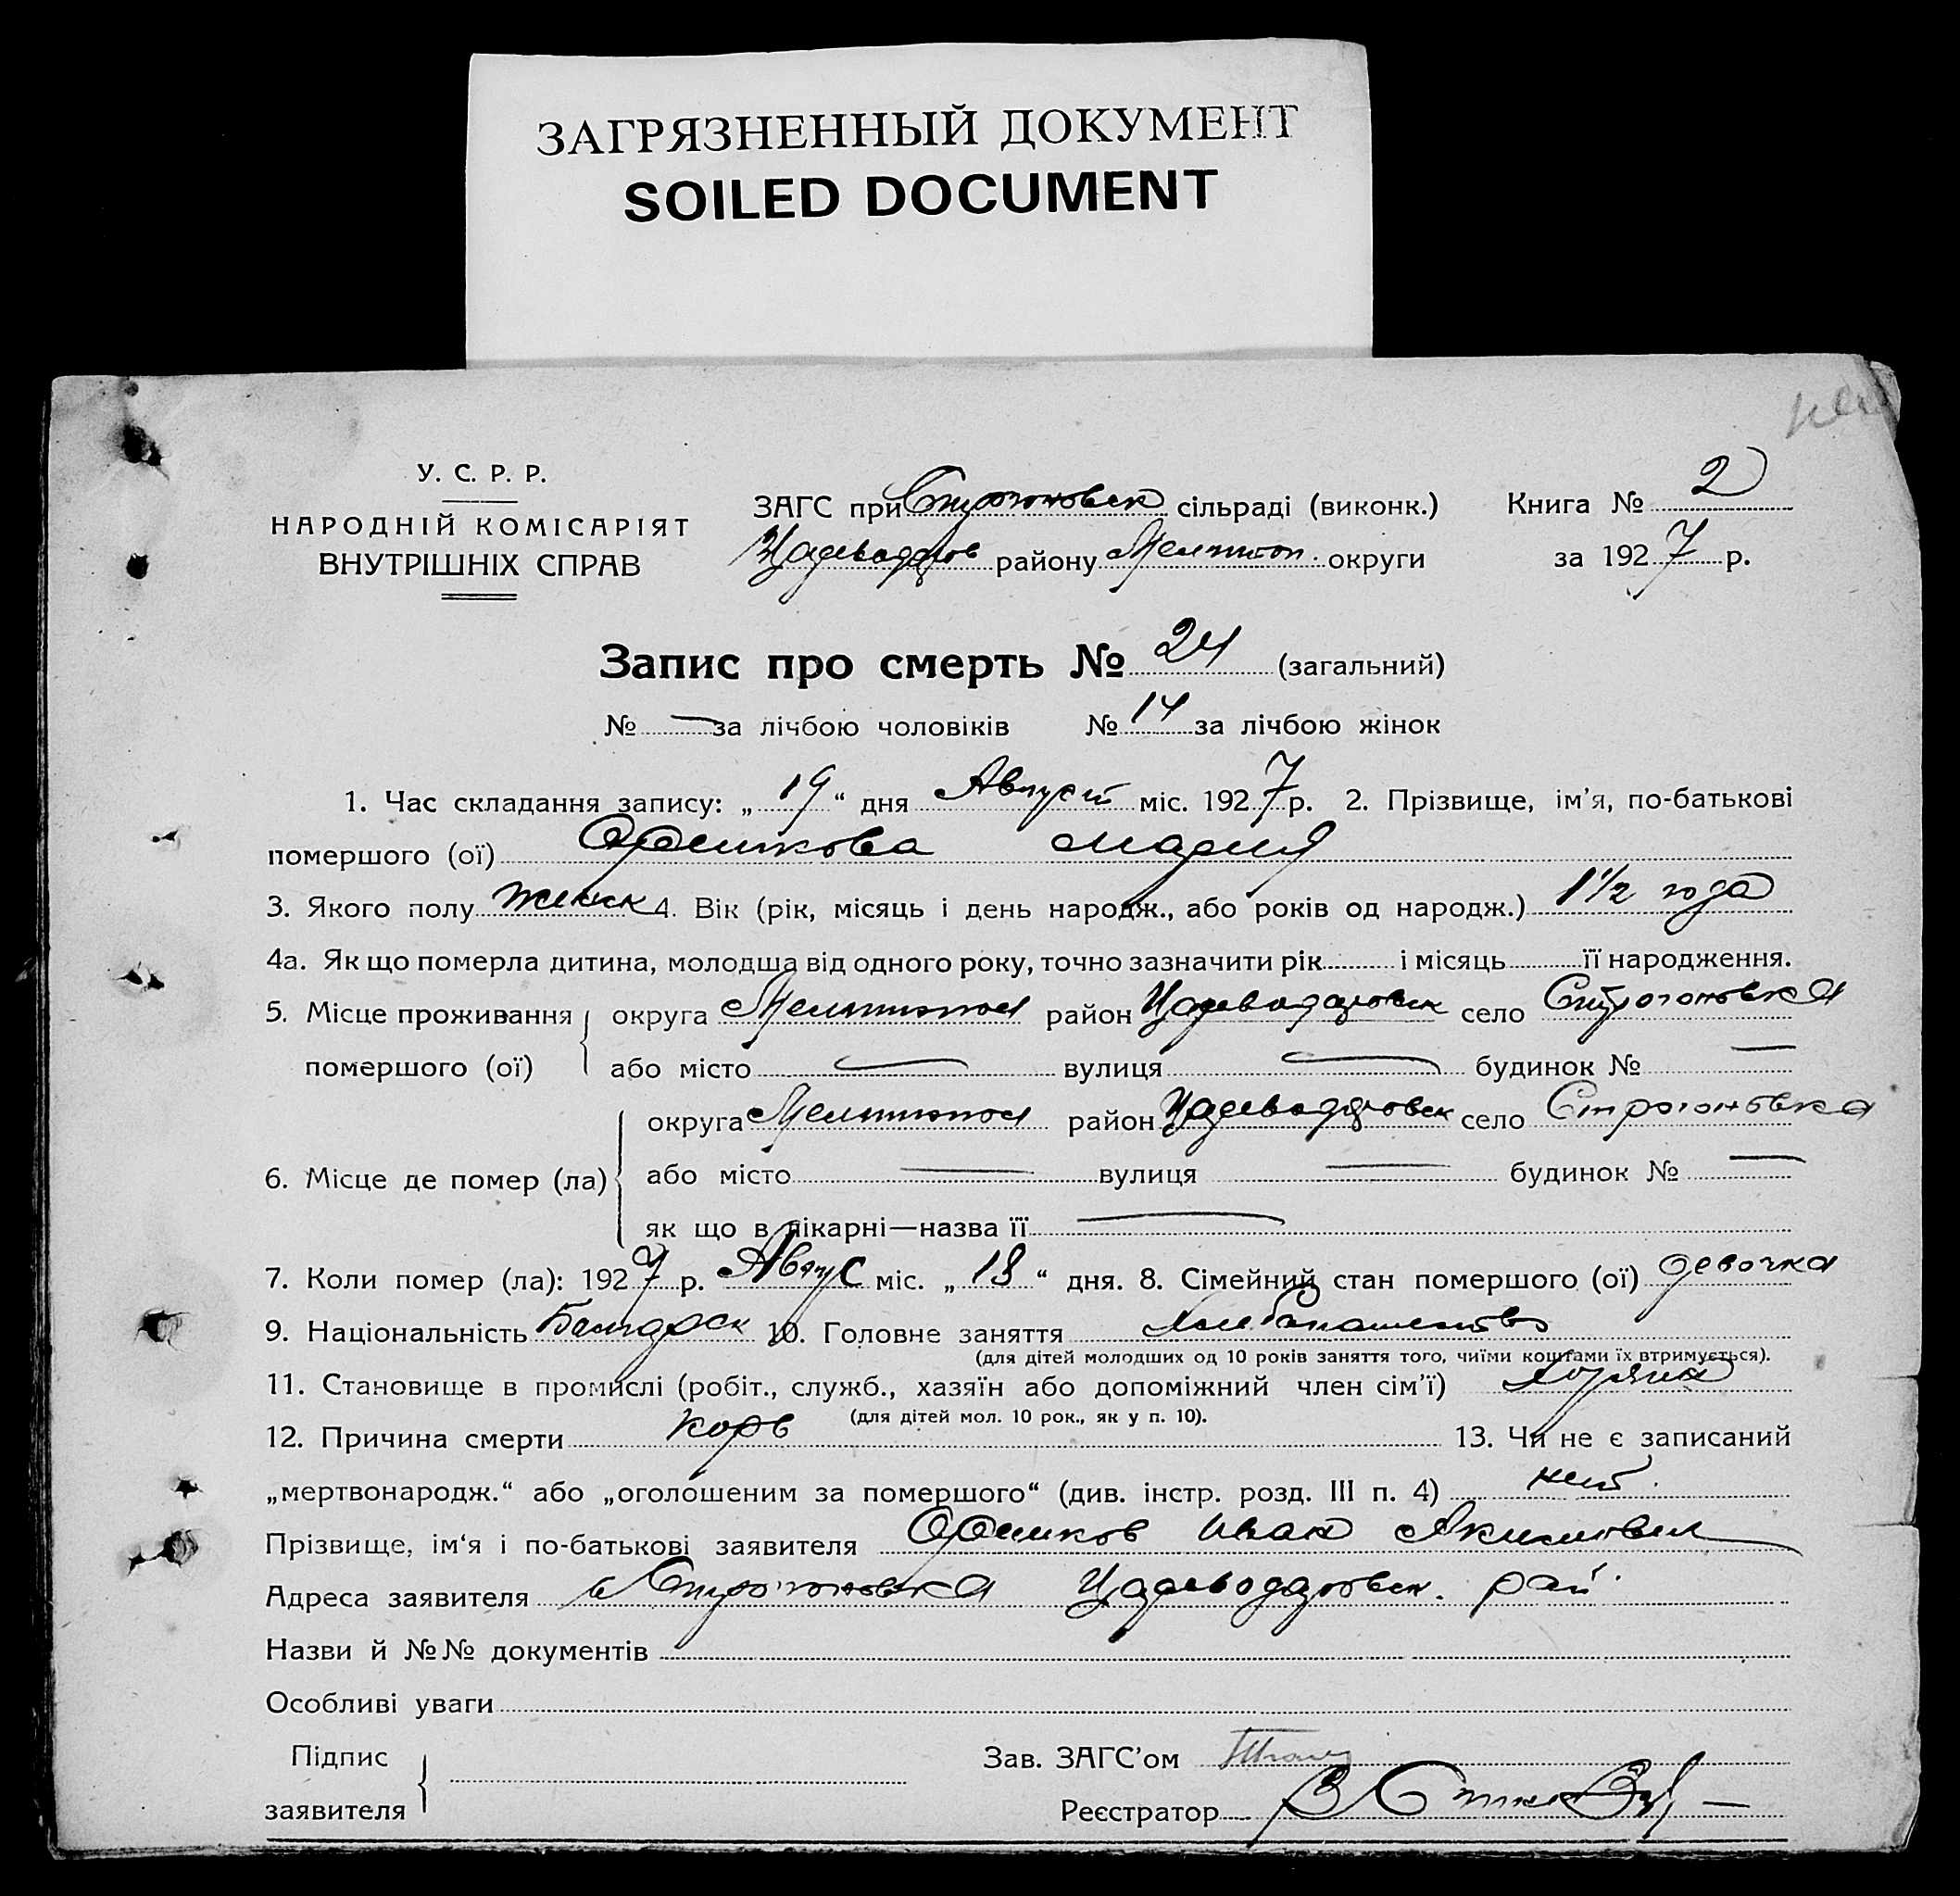 ЗАГРЯЗНЕННЫЙ ДОКУМЕНТ
SOILED DOCUMENT
У. С. Р. Р.
НАРОДНІЙ КОМІСАРІЯТ
ВНУТРІШНІХ СПРАВ
ЗАГС при Строгоновск сільраді (виконк.)
району Мелитоп. округи
Книга № 2
за 1927 р.
Запис про смерть № 24 (загальний)
№ — за лічбою чоловіків № 14 за лічбою жінок
1. Час складання запису: „ 19 “ дня Август міс. 1927 р. 2. Прізвище, ім'я, по-батькові
помершого (ої) Мария
3. Якого полу женск 4. Вік (рік, місяць і день народж., або років од народж.) 1½ года
4а. Як що померла дитина, молодша від одного року, точно зазначити рік і місяць її народження.
5. Місце проживання помершого (ої) округа Мелитопол район село Строгоновка
або місто — вулиця — будинок № —
6. Місце де помер (ла) округа Мелитопол район село Строгоновка
або місто — вулиця — будинок № —
як що в лікарні—назва її —
7. Коли помер (ла): 1927 р. Авгус міс. „ 18 “ дня. 8. Сімейний стан помершого (ої) девочка
9. Національність 10. Головне заняття хлебопашество
(для дітей молодших од 10 років заняття того, чиїми коштами їх втримується).
11. Становище в промислі (робіт., служб., хазяїн або допоміжний член сім'ї)
(для дітей мол. 10 рок., як у п. 10).
12. Причина смерти корь 13. Чи не є записаний
„мертвонародж.“ або „оголошеним за помершого“ (див. інстр. розд. III п. 4) нет.
Прізвище, ім'я і по-батькові заявителя Иван Акимович
Адреса заявителя с Строгоновка рай.
Назви й №№ документів
Особливі уваги
Підпис
заявителя
Зав. ЗАГС'ом
Реєстратор